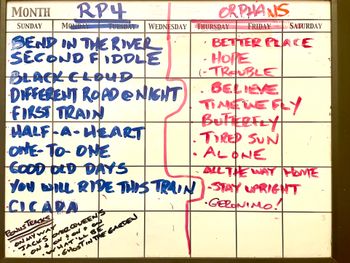 MONTH
RP4
ORPHANS
SUNDAY MONDAY TUESDAY WEDNESDAY THURSDAY FRIDAY SATURDAY
BEND IN THE RIVER
SECOND FIDDLE
BLACK CLOUD
DIFFERENT ROAD @ NIGHT
FIRST TRAIN
HALF-A-HEART
ONE-TO-ONE
GOOD OLD DAYS
YOU WILL RIDE THIS TRAIN
CICADA
BONUS TRACKS
· ON MY WAY
· JACKS OVER QUEENS
· ON & ON & ON & ON
· WHAT'LL BE
· GHOST IN THE GARDEN
· BETTER PLACE
· HOPE
· TROUBLE
· BELIEVE
TIME WE FLY
BUTTERFLY
· TIRED SUN
· ALONE
· ALL THE WAY HOME
· STAY UPRIGHT
· GERONIMO!